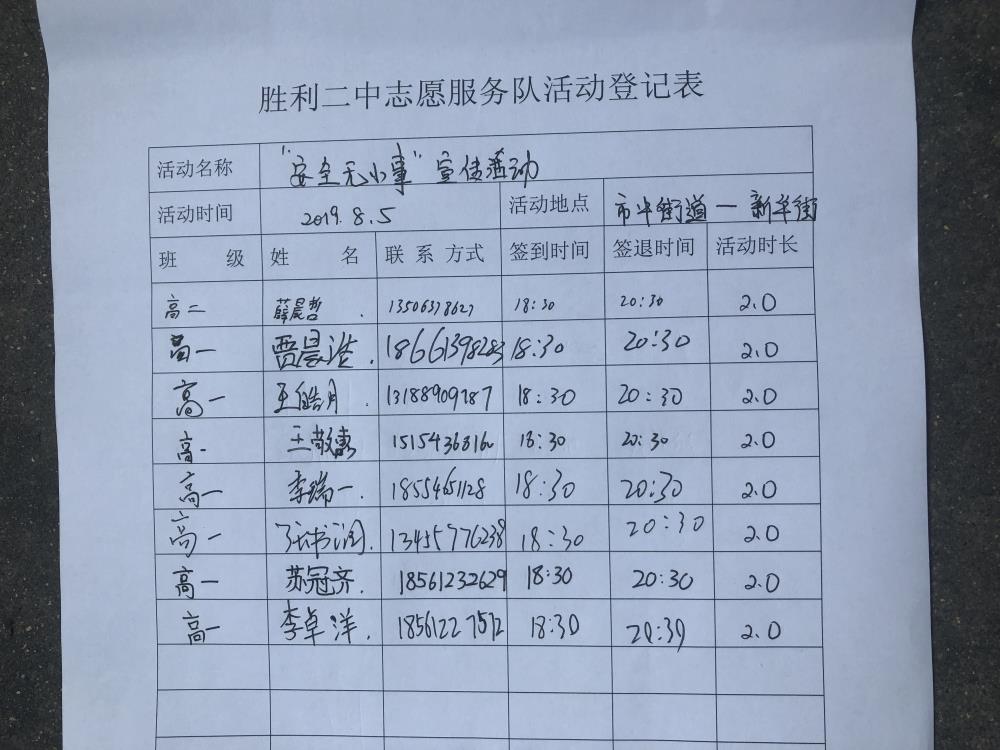 胜利二中志愿服务队活动登记表
活动名称 "安全无小事"宣传活动
活动时间 2019.8.5 活动地点 市中街道一新半街
班 级 姓 名 联系方式 签到时间 签退时间 活动时长
高二 薛晨哲 13506378627 18:30 20:30 2.0
高一 贾晨浩 18661398283 18:30 20:30 2.0
高一 王皓月 13188909787 18:30 20:30 2.0
高一 王敬惠 18:30 20:30 2.0
高一 李瑞一 18554651128 18:30 20:30 2.0
高一 张书润 13455776238 18:30 20:30 2.0
高一 苏冠齐 18561232629 18:30 20:30 2.0
高一 李卓洋 18561227572 18:30 20:30 2.0